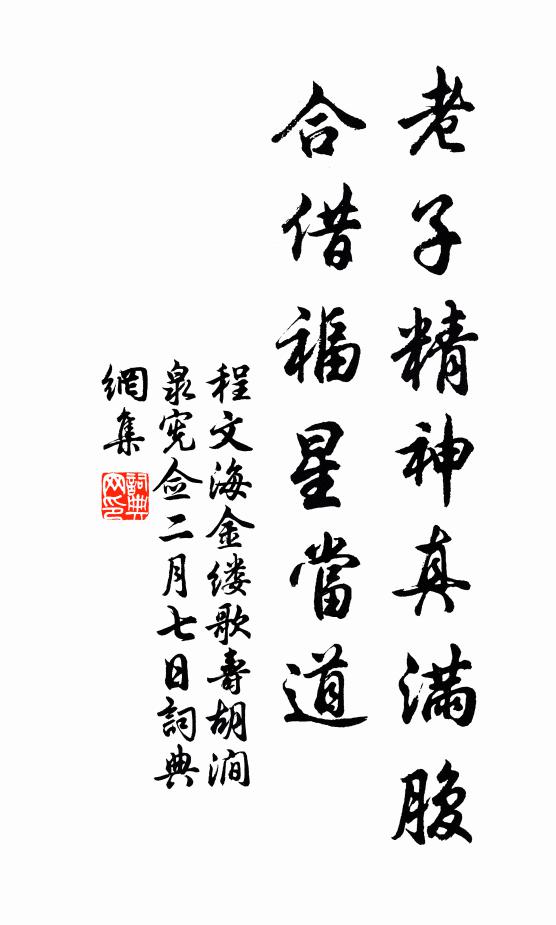 老子精神真满腹
合借福星當道
程文海金缕歌壽胡澗
泉宪佥二月七日詞典
網集
詞典網印